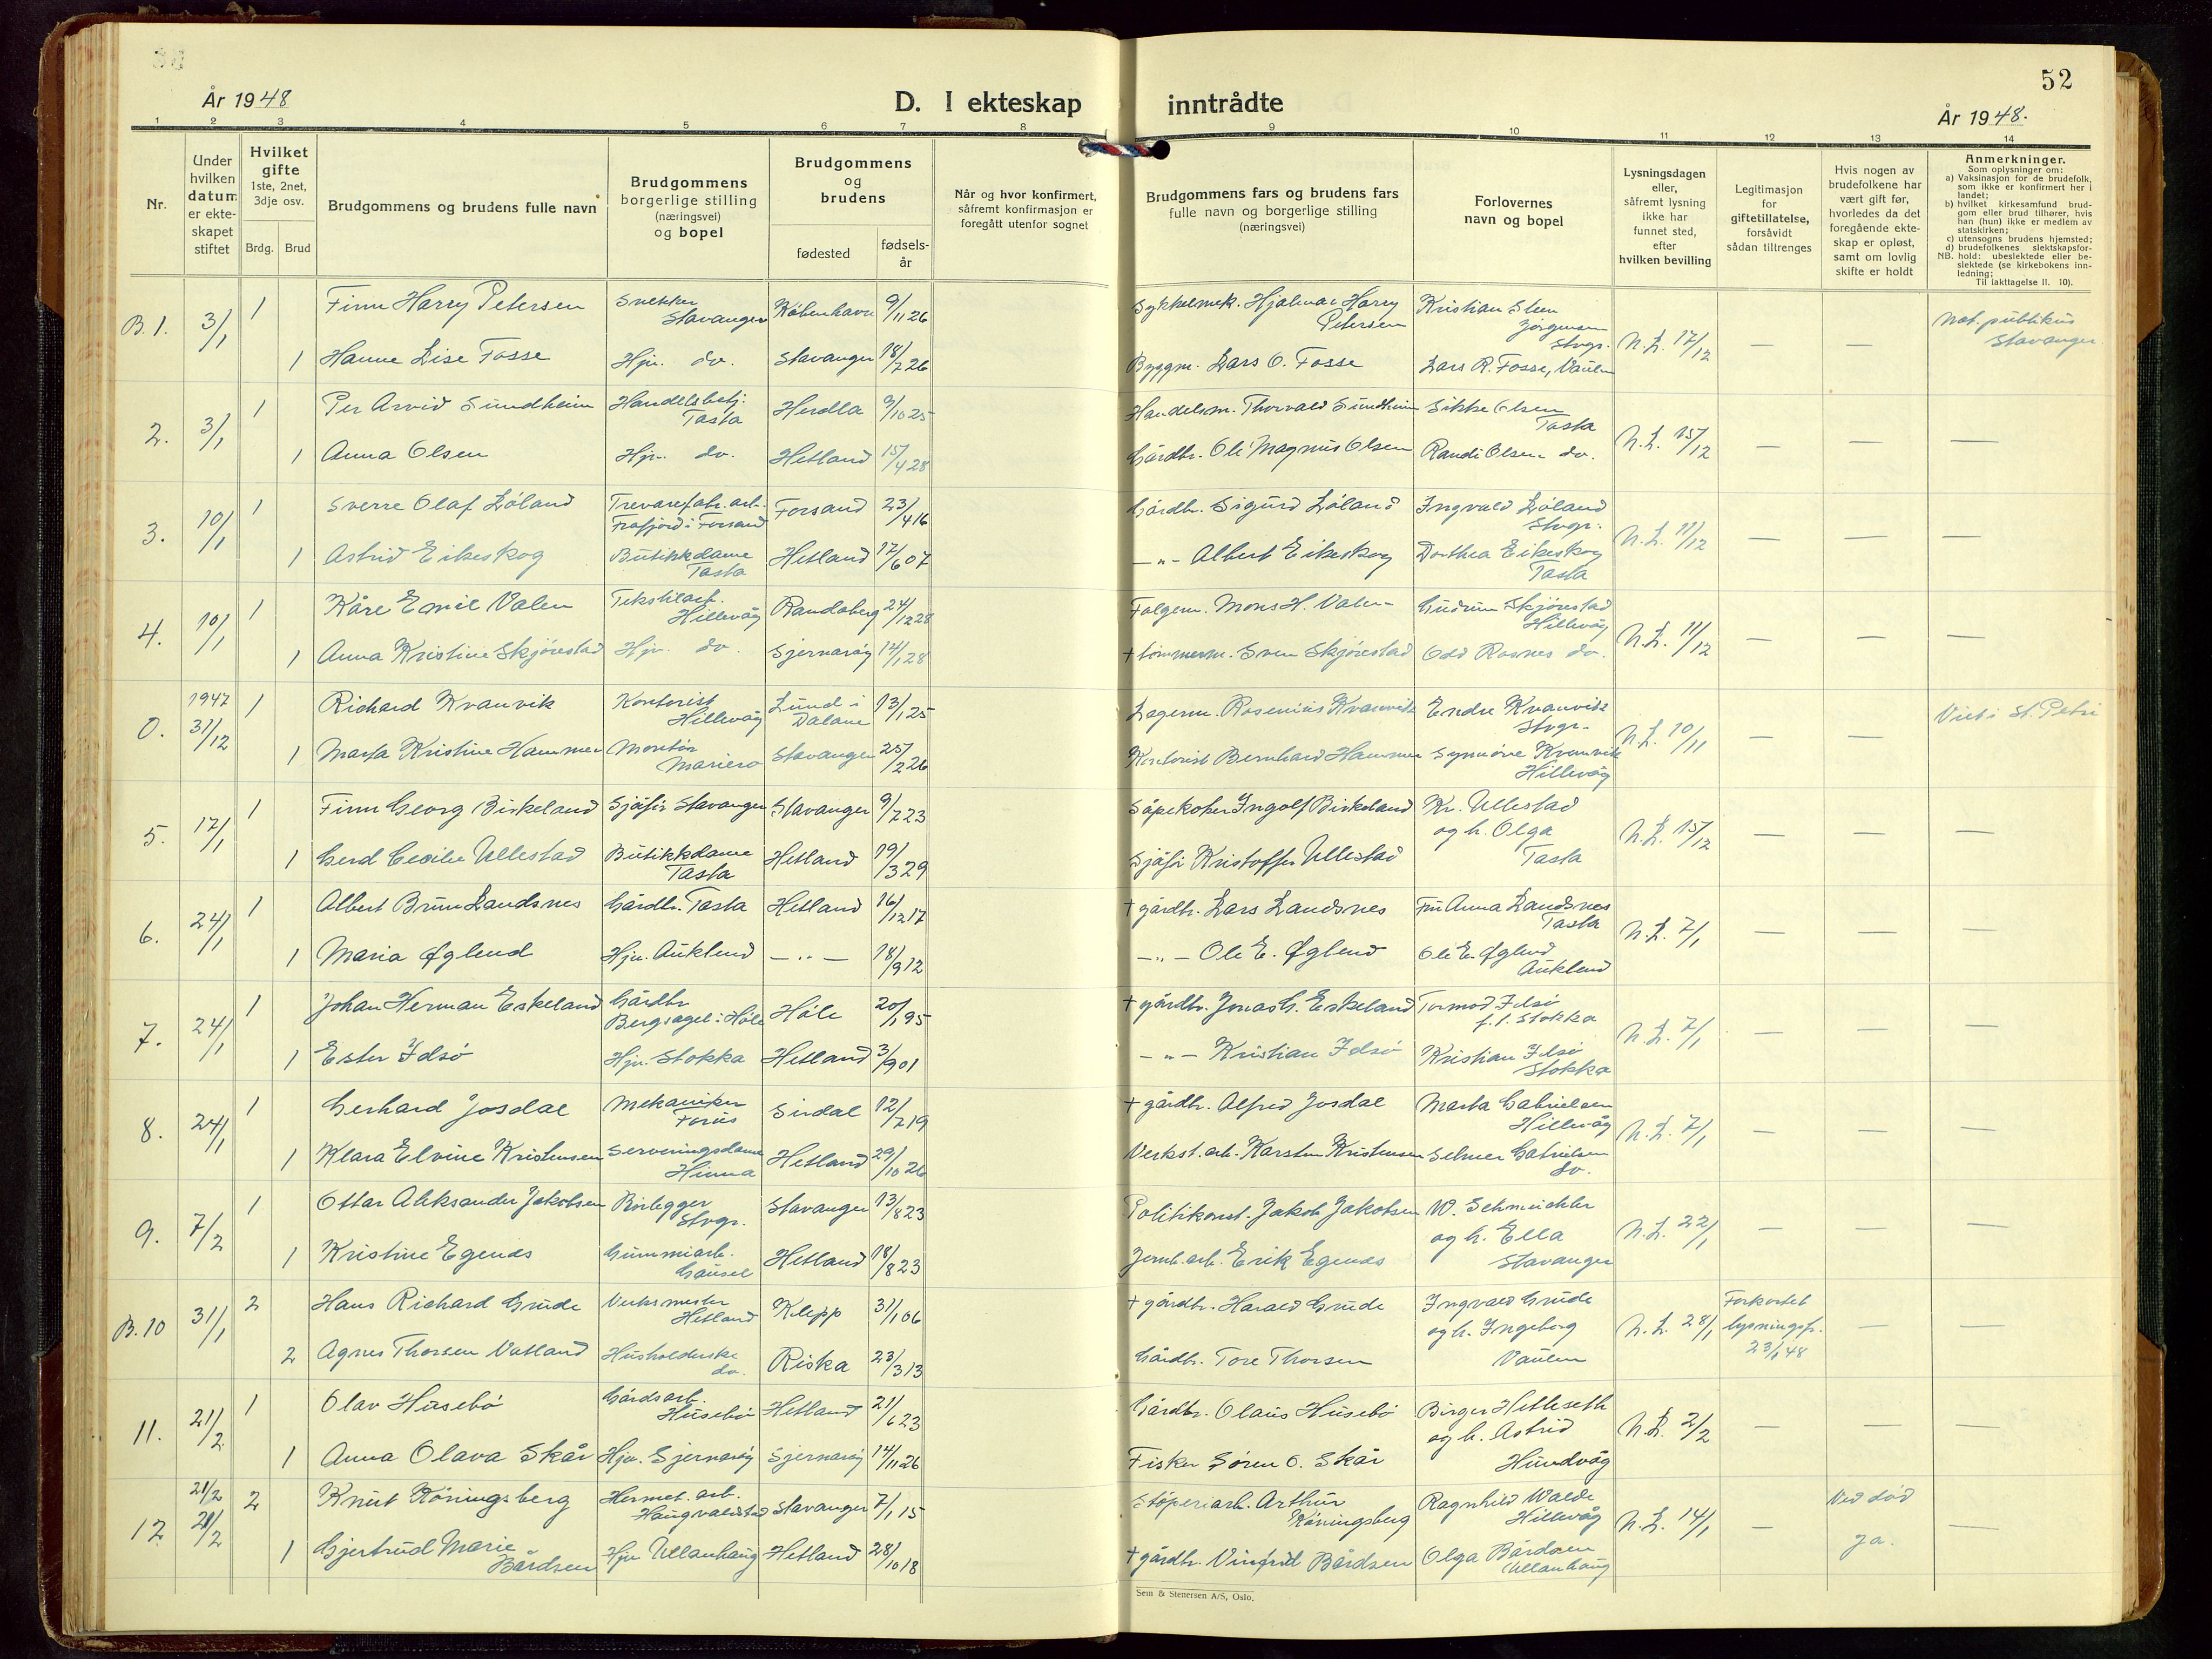 52
År 1948
D. I ekteskap inntrådte
År 1948.
1 2 3 4 5 6 7 8 9 10 11 12 13 14
Nr.
Under hvilken datum er ekteskapet stiftet
Hvilket gifte
1ste, 2net, 3dje osv.
Brdg. Brud
Brudgommens og brudens fulle navn
Brudgommens borgerlige stilling (næringsvei) og bopel
Brudgommens og brudens
fødested
fødselsår
Når og hvor konfirmert, såfremt konfirmasjon er foregått utenfor sognet
Brudgommens fars og brudens fars fulle navn og borgerlige stilling (næringsvei)
Forlovernes navn og bopel
Lysningsdagen eller, såfremt lysning ikke har funnet sted, efter hvilken bevilling
Legitimasjon for giftetillatelse, forsåvidt sådan tiltrenges
Hvis nogen av brudefolkene har vært gift før, hvorledes da det foregående ekteskap er opløst, samt om lovlig skifte er holdt
Anmerkninger.
Som oplysninger om:
a) Vaksinasjon for de brudefolk, som ikke er konfirmert her i landet;
b) hvilket kirkesamfund brudgom eller brud tilhører, hvis han (hun) ikke er medlem av statskirken;
c) utensogns brudens hjemsted;
d) brudefolkenes slektskapsforhold: ubeslektede eller beslektede (se kirkebokens innledning;
NB.
Til iakttagelse II. 10).
B. 1. 3/1 1 Finn Harry Petersen Snekker Stavanger København 9/11 26 Sykkelmek. Hjalmar Harry Petersen Kristian Steen Jörgensen Stvgr. N.L. 17/12 — — Not. publikus Stavanger
1 Hanne Lise Fosse Hjv. do. Stavanger 18/7 26 Byggm. Lars O. Fosse Lars R. Fosse, Vaulen
2. 3/1 1 Per Arvid Sundheim Handelsbetj. Tasta Herdla 9/10 25 Handelsm. Thorvald Sundheim Sikke Olsen Tasta N.L. 15/12 — — —
1 Anna Olsen Hjv. do. Hetland 15/4 28 Gårdbr. Ole Magnus Olsen Randi Olsen do.
3. 10/1 1 Sverre Olaf Løland Trevarefabr. arb. Frafjord i Forsand Forsand 23/4 16 Gårdbr. Sigurd Løland Ingvald Løland Stvgr. N.L. 11/12 — — —
1 Astrid Eikeskog Butikkdame Tasta Hetland 17/6 07 —"— Albert Eikeskog Dorthea Eikeskog Tasta
4. 10/1 1 Kåre Emil Valen Tekstilarb. Hillevåg Randaberg 24/12 28 Falgem. Mons H. Valen Gudrun Skjørestad Hillevåg N.L. 11/12 — — —
1 Anna Kristine Skjørestad Hjv. do. Sjernarøy 14/1 28 † tømmerm. Sven Skjørestad Odd Rosnes do.
0. 1947 31/12 1 Richard Kvanvik Kontorist Hillevåg Lund i Dalane 13/1 25 Lagerm. Rosenius Kvanvik Endre Kvanvik Stvgr. N.L. 10/11 — — Viet i St. Petri
1 Marta Kristine Hammer Montør Mariero Stavanger 25/2 26 Kontorist Bernhard Hammer Synnöve Kvanvik Hillevåg
5. 17/1 1 Finn Georg Birkeland Sjåfør Stavanger Stavanger 9/7 23 Såpekoker Ingolf Birkeland Kr. Ullestad og h. Olga Tasta N.L. 15/12 — — —
1 Gerd Cecilie Ullestad Butikkdame Tasta Hetland 19/3 29 Sjåfør Kristoffer Ullestad
6. 24/1 1 Albert Brun Landsnes Gårdbr. Tasta Hetland 16/12 17 † gårdbr. Lars Landsnes Fru Anna Landsnes Tasta N.L. 7/1 — — —
1 Maria Øglend Hjv. Auklend —"— 18/9 12 —"— Ole E. Øglend Ole E. Øglend Auklend
7. 24/1 1 Johan Herman Eskeland Gårdbr Bergsagel i Høle Høle 20/1 95 † gårdbr. Jonas G. Eskeland Tormod Idsø f.t. Stokka N.L. 7/1 — — —
1 Ester Idsø Hjv. Stokka Hetland 3/9 01 —"— Kristian Idsø Kristian Idsø Stokka
8. 24/1 1 Gerhard Josdal Mekaniker Forus Sirdal 12/7 19 † gårdbr. Alfred Josdal Marta Gabrielsen Hillevåg N.L. 7/1 — — —
1 Klara Elvine Kristensen Serveringsdame Hinna Hetland 29/10 26 Verkst. arb. Karsten Kristensen Selmer Gabrielsen do.
9. 7/2 1 Ottar Aleksander Jakobsen Rörlegger Stvgr. Stavanger 13/8 23 Politikonst. Jakob Jakobsen W. Schmeichler og h. Ella Stavanger N.L. 22/1 — — —
1 Kristine Egenes Gummiarb. Gausel Hetland 18/8 23 Jernb. arb. Erik Egenes
B. 10 31/1 2 Hans Richard Grude Verksmester Hetland Klepp 31/1 06 † gårdbr. Harald Grude Ingvald Grude og h. Ingeborg Vaulen N.L. 28/1 Forkortet lysningsfr. 23/1 48 — —
2 Agnes Thorsen Vatland Husholderske do. Riska 23/3 13 Gårdbr. Tore Thorsen
11. 21/2 1 Olav Husebö Gårdsarb. Husebö Hetland 21/6 23 Gårdbr. Olaus Husebö Birger Hetleseth og h. Astrid Hundvåg N.L. 2/2 — — —
1 Anna Olava Skår Hjv. Sjernarøy Sjernarøy 14/11 26 Fisker Sören O. Skår
12. 21/2 21/2 2 Knut Köningsberg Hermet. arb. Haugvaldstad Stavanger 7/1 15 Støperiarb. Arthur Köningsberg Ragnhild Walde Hillevåg N.L. 14/1 — Ved död ja. —
1 Gjertrud Marie Bårdsen Hjv Ullanhaug Hetland 28/10 18 † gårdbr. Vinfrid Bårdsen Olga Bårdsen Ullanhaug
Sem & Stenersen A/S, Oslo.